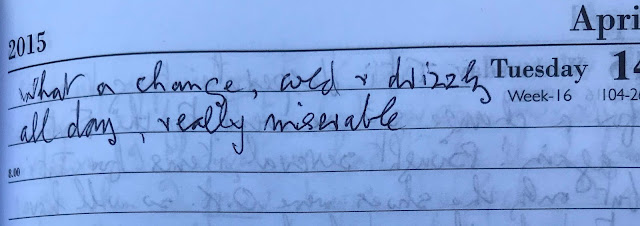 Apri
2015
What a change, cold & drizzly Tuesday 14
Week-16 104-26
all day, really miserable
8.00